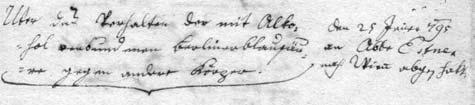 Über das Verhalten der mit Alko-
=hol verbundenen Berlinerblausäu-
=re gegen andere Körper.
den 25 Jäner 795
an Abbe Estner
nach Wien abgeschikt